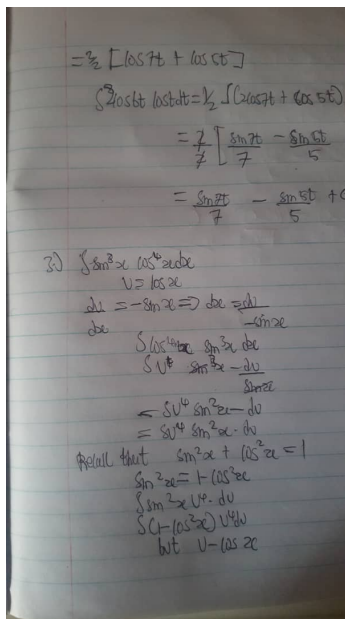 = 2/2 [cos7t + cos5t]
∫2cos6t cost dt = 1/2 ∫(2cos7t + cos5t)
= 2/2 [sin7t/7 - sin5t/5
= sin7t/7 - sin5t/5 + c
3.) ∫sin³x cos⁴x dx
u = cosx
du/dx = -sinx => dx = du/-sinx
∫cos⁴x sin³x dx
∫u⁴ sin³x - du/sinx
= ∫u⁴ sin²x - du
= ∫u⁴ sin²x - du
Recall that sin²x + cos²x = 1
sin²x = 1 - cos²x
∫sin²x u⁴ - du
∫(1 - cos²x) u⁴ du
but u - cos x